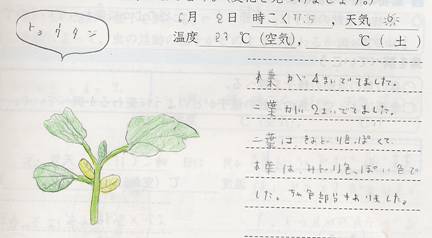 トョウタン
6月 2日 時こく 11:5 , 天気
温度 23 ℃ (空気), ℃ (土)
本葉が4まいでてました。
二葉が2まいでてました。
二葉はきみどり色っぽくて、
本葉は、みどり色っぽい色で
した。ちゃ色部分もありました。